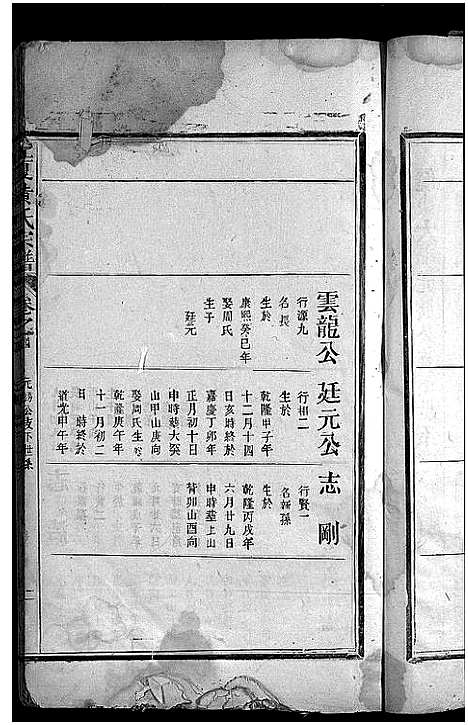 雲龍公
行源九
名長
生於
康熙癸巳年
娶周氏
生子
廷元
廷元公
行相二
生於
乾隆甲子年
十二月十四
日亥時終於
嘉慶丁卯年
正月初十日
申時葬大𡎺
山甲山庚向
娶周氏生於
乾隆庚午年
十一月初二
日 時終於
道光甲午年
志剛
行賢一
名新孫
生於
乾隆丙戌年
六月廿九日
申時葬上山
背卯山酉向
黃氏宗譜